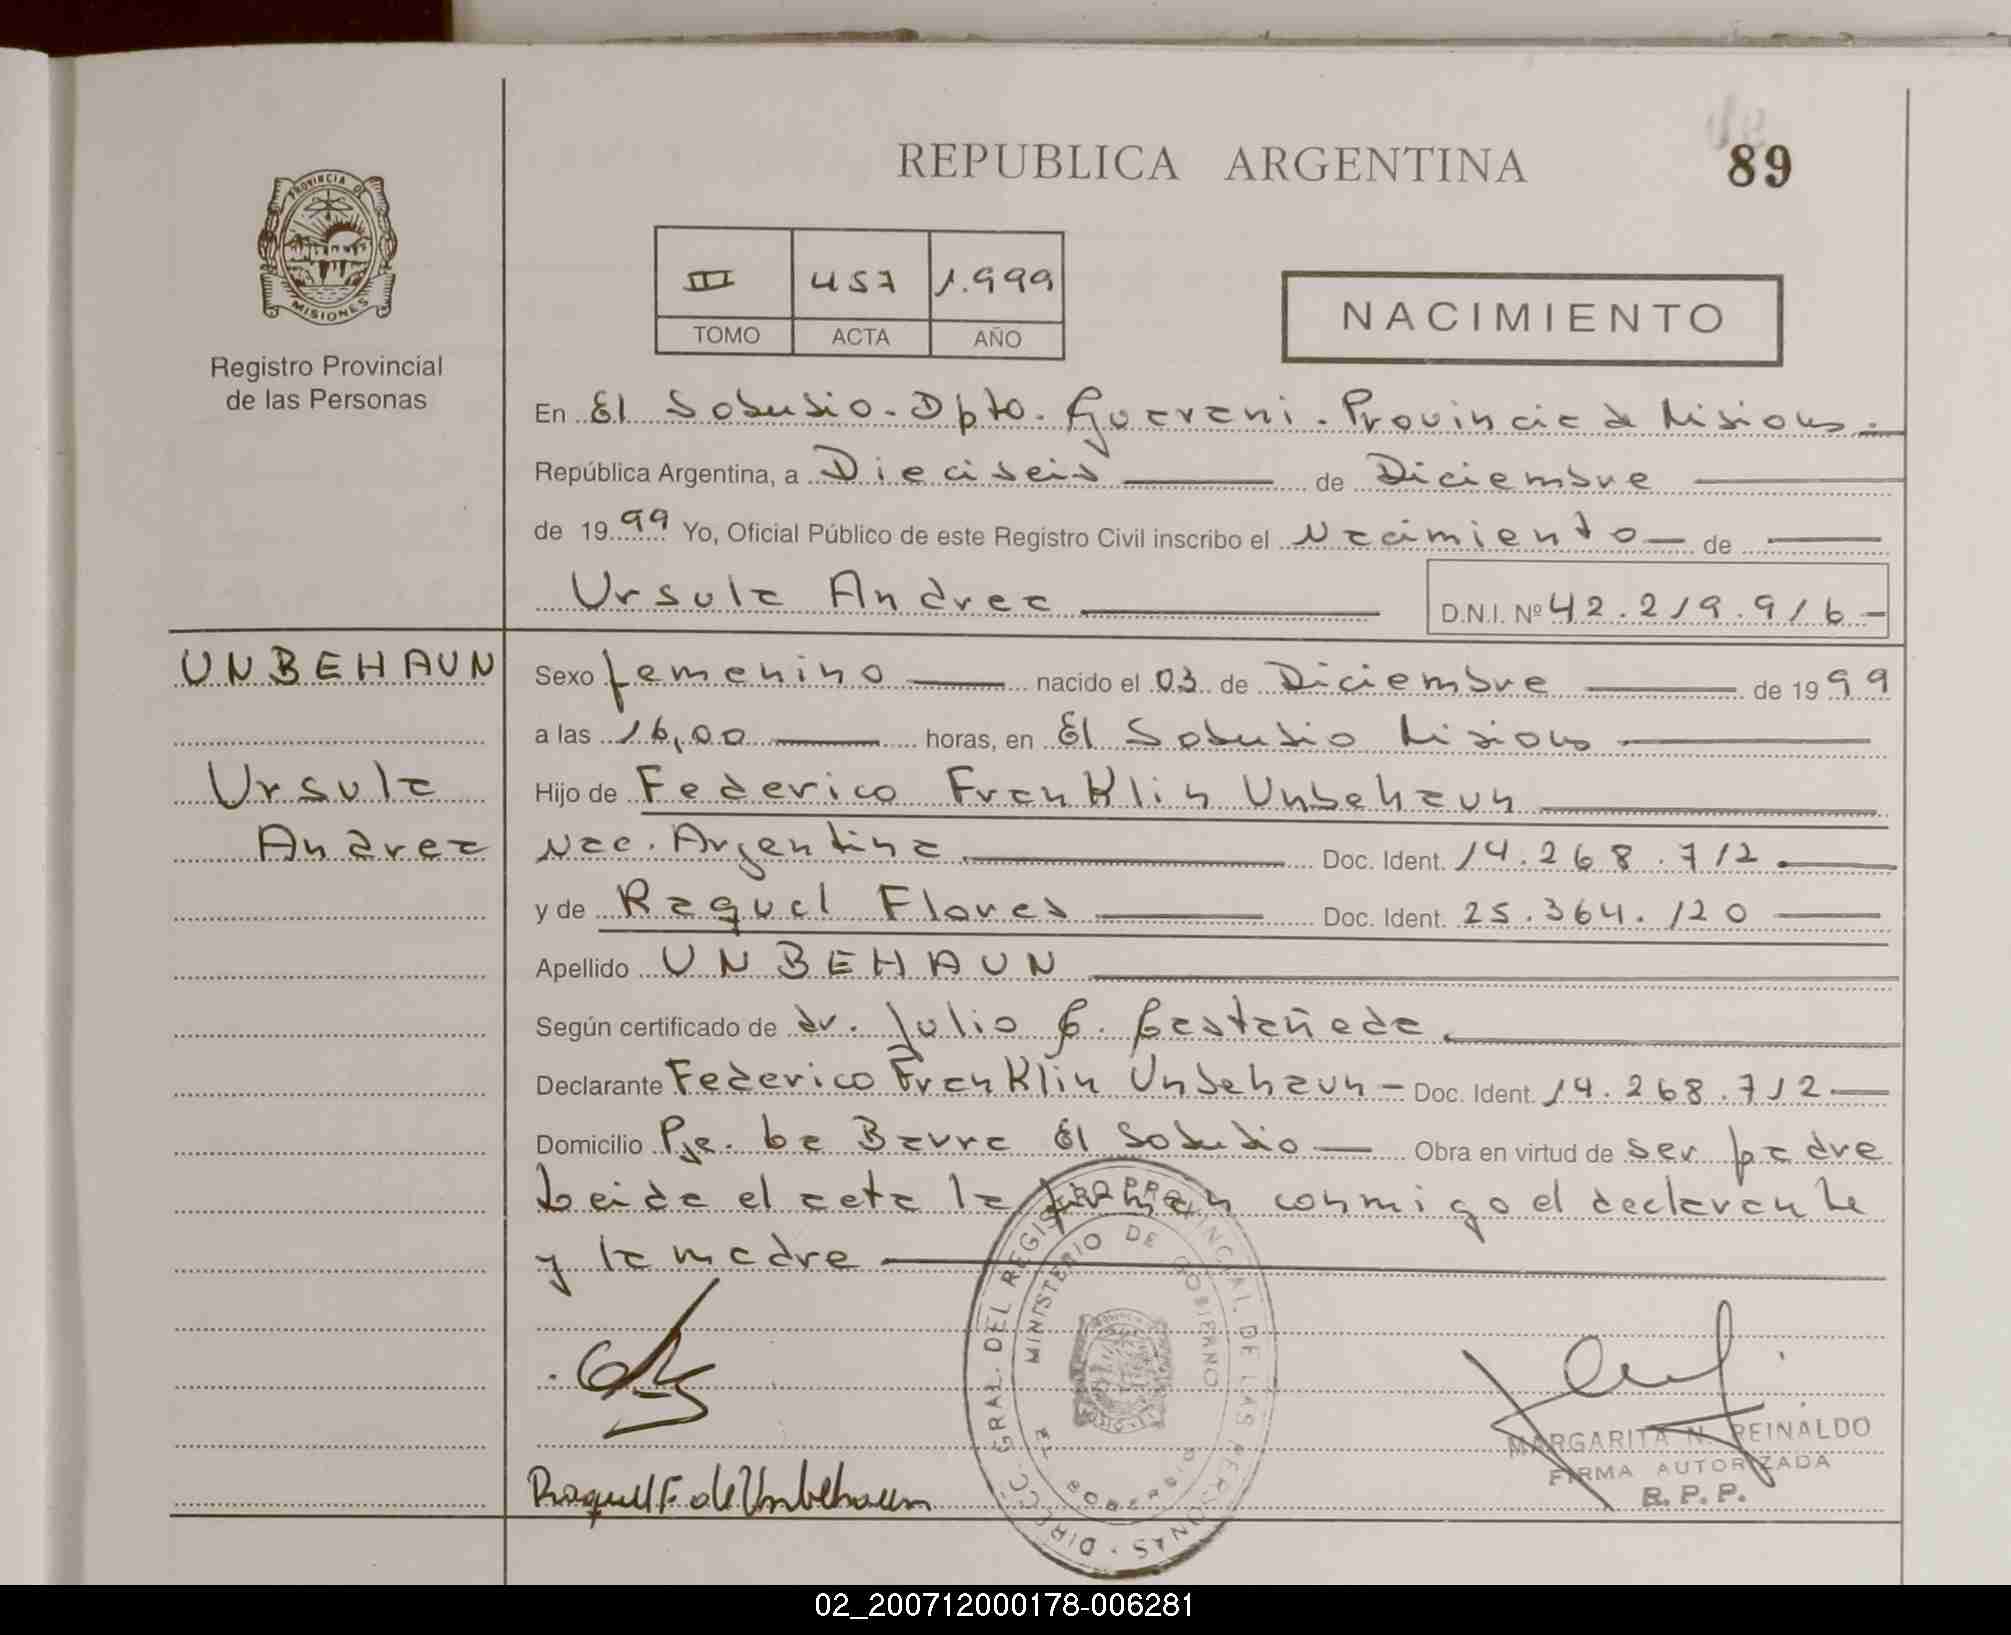 REPUBLICA ARGENTINA
89
PROVINCIA DE
MISIONES
Registro Provincial
de las Personas
III 457 1.999
TOMO ACTA AÑO
NACIMIENTO
En El Soberbio - Dpto. Guarani - Provincia de Misiones -
República Argentina, a Dieciseis de Diciembre
de 1999 Yo, Oficial Público de este Registro Civil inscribo el Nacimiento de
Ursula Andrea D.N.I. Nº 42.219.916 -
UNBEHAUN
Ursula
Andrea
Sexo femenino nacido el 03 de Diciembre de 1999
a las 16,00 horas, en El Soberbio Misiones
Hijo de Federico Franklin Unbehaun
Nac. Argentina Doc. Ident. 14.268.712.
y de Raquel Flores Doc. Ident. 25.364.120
Apellido UNBEHAUN
Según certificado de dr. Julio C. Castañeda.
Declarante Federico Franklin Unbehaun - Doc. Ident. 14.268.712
Domicilio Pje. La Barra El Soberbio Obra en virtud de ser padre
Leida el acta la firman conmigo el declarante
y la madre
DIRECC. GRAL. DEL REGISTRO PROVINCIAL DE LAS PERSONAS
MINISTERIO DE GOBIERNO
Raquel F. de Unbehaun
MARGARITA N. REINALDO
FIRMA AUTORIZADA
R. P. P.
02_200712000178-006281